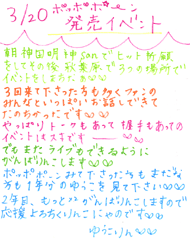 3/20 ポッポポーン
発売イベント
朝神田明神さんでヒット祈願
をしてその後 秋葉原で3つの場所で
イベントをしました
3回来て下さった方も多くファンの
みんなといっぱいお話しできて
たのしかったです
やっぱりトークもあって握手もあっての
イベントはステキです
でもまたライブもできるように
がんばりんこします
ポッポポーンこみて下さった方もまだな
方も1年分のゆうこを見て下さい
2年目、もっとがんばりんこしますので
応援よろちくりんこにゃのです
ゆうこりん